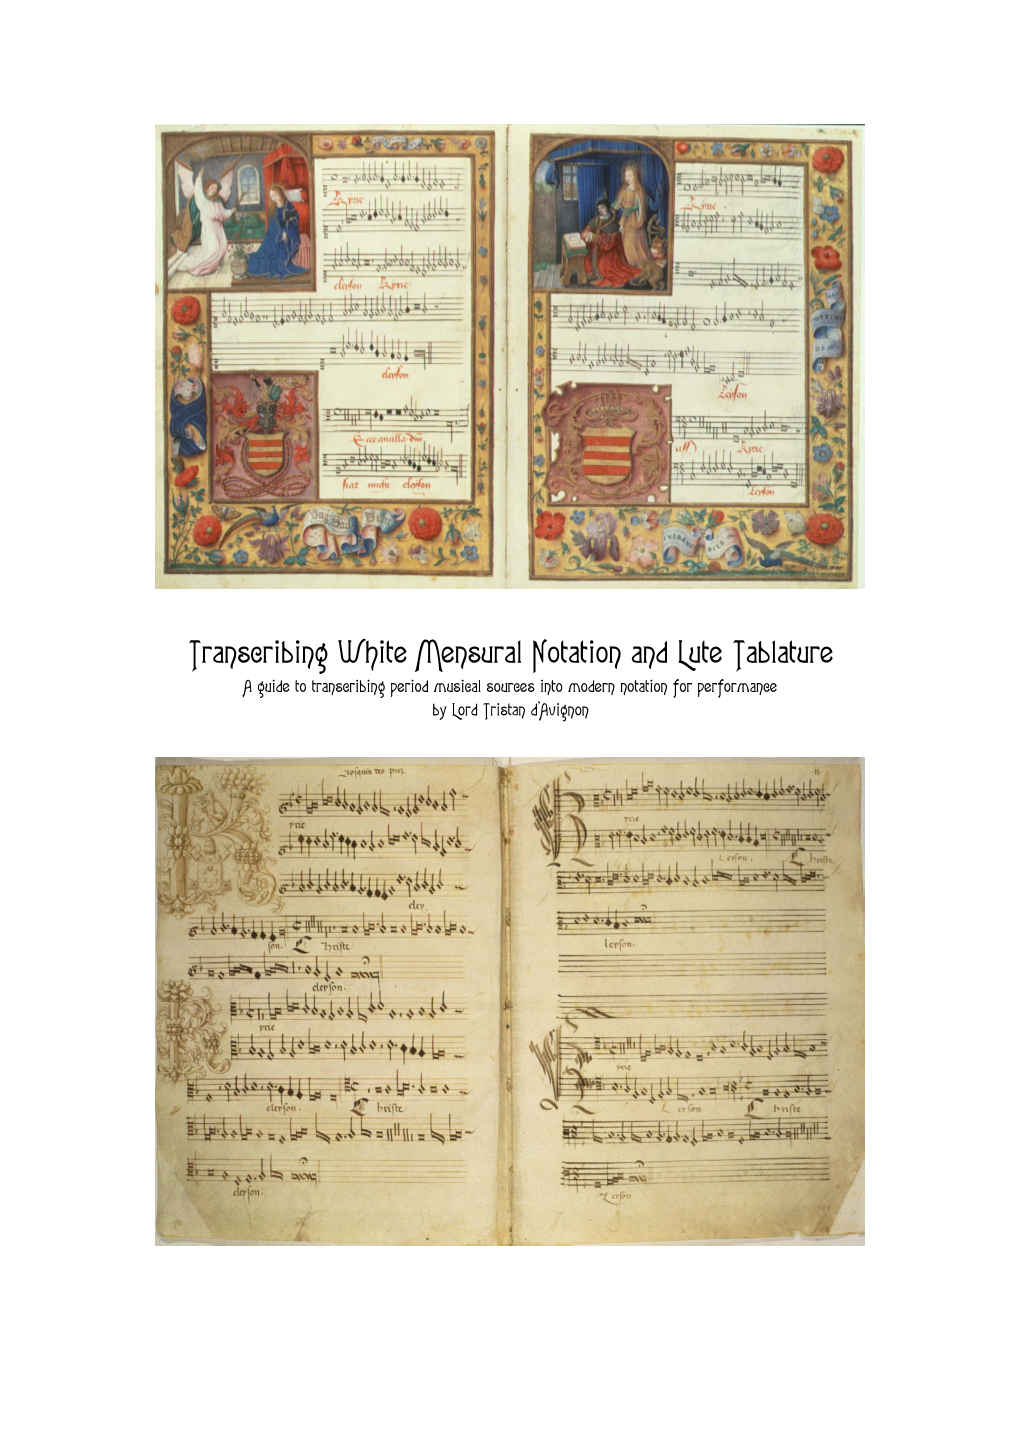 Kyrie
Kyrie
eleyson Kyrie
eleyson
Ecce ancilla dñi
fiat michi eleyson
Leyson
Kyrie
Leyson
Transcribing White Mensural Notation and Lute Tablature
A guide to transcribing period musical sources into modern notation for performance
by Lord Tristan d'Avignon
Josquin des prez.
yrie
eley
son. Christe
eleyson.
yrie
eleyson. Christe
eleyson.
yrie
Leyson. Christe
leyson.
yrie
Leyson Christe
Leyson